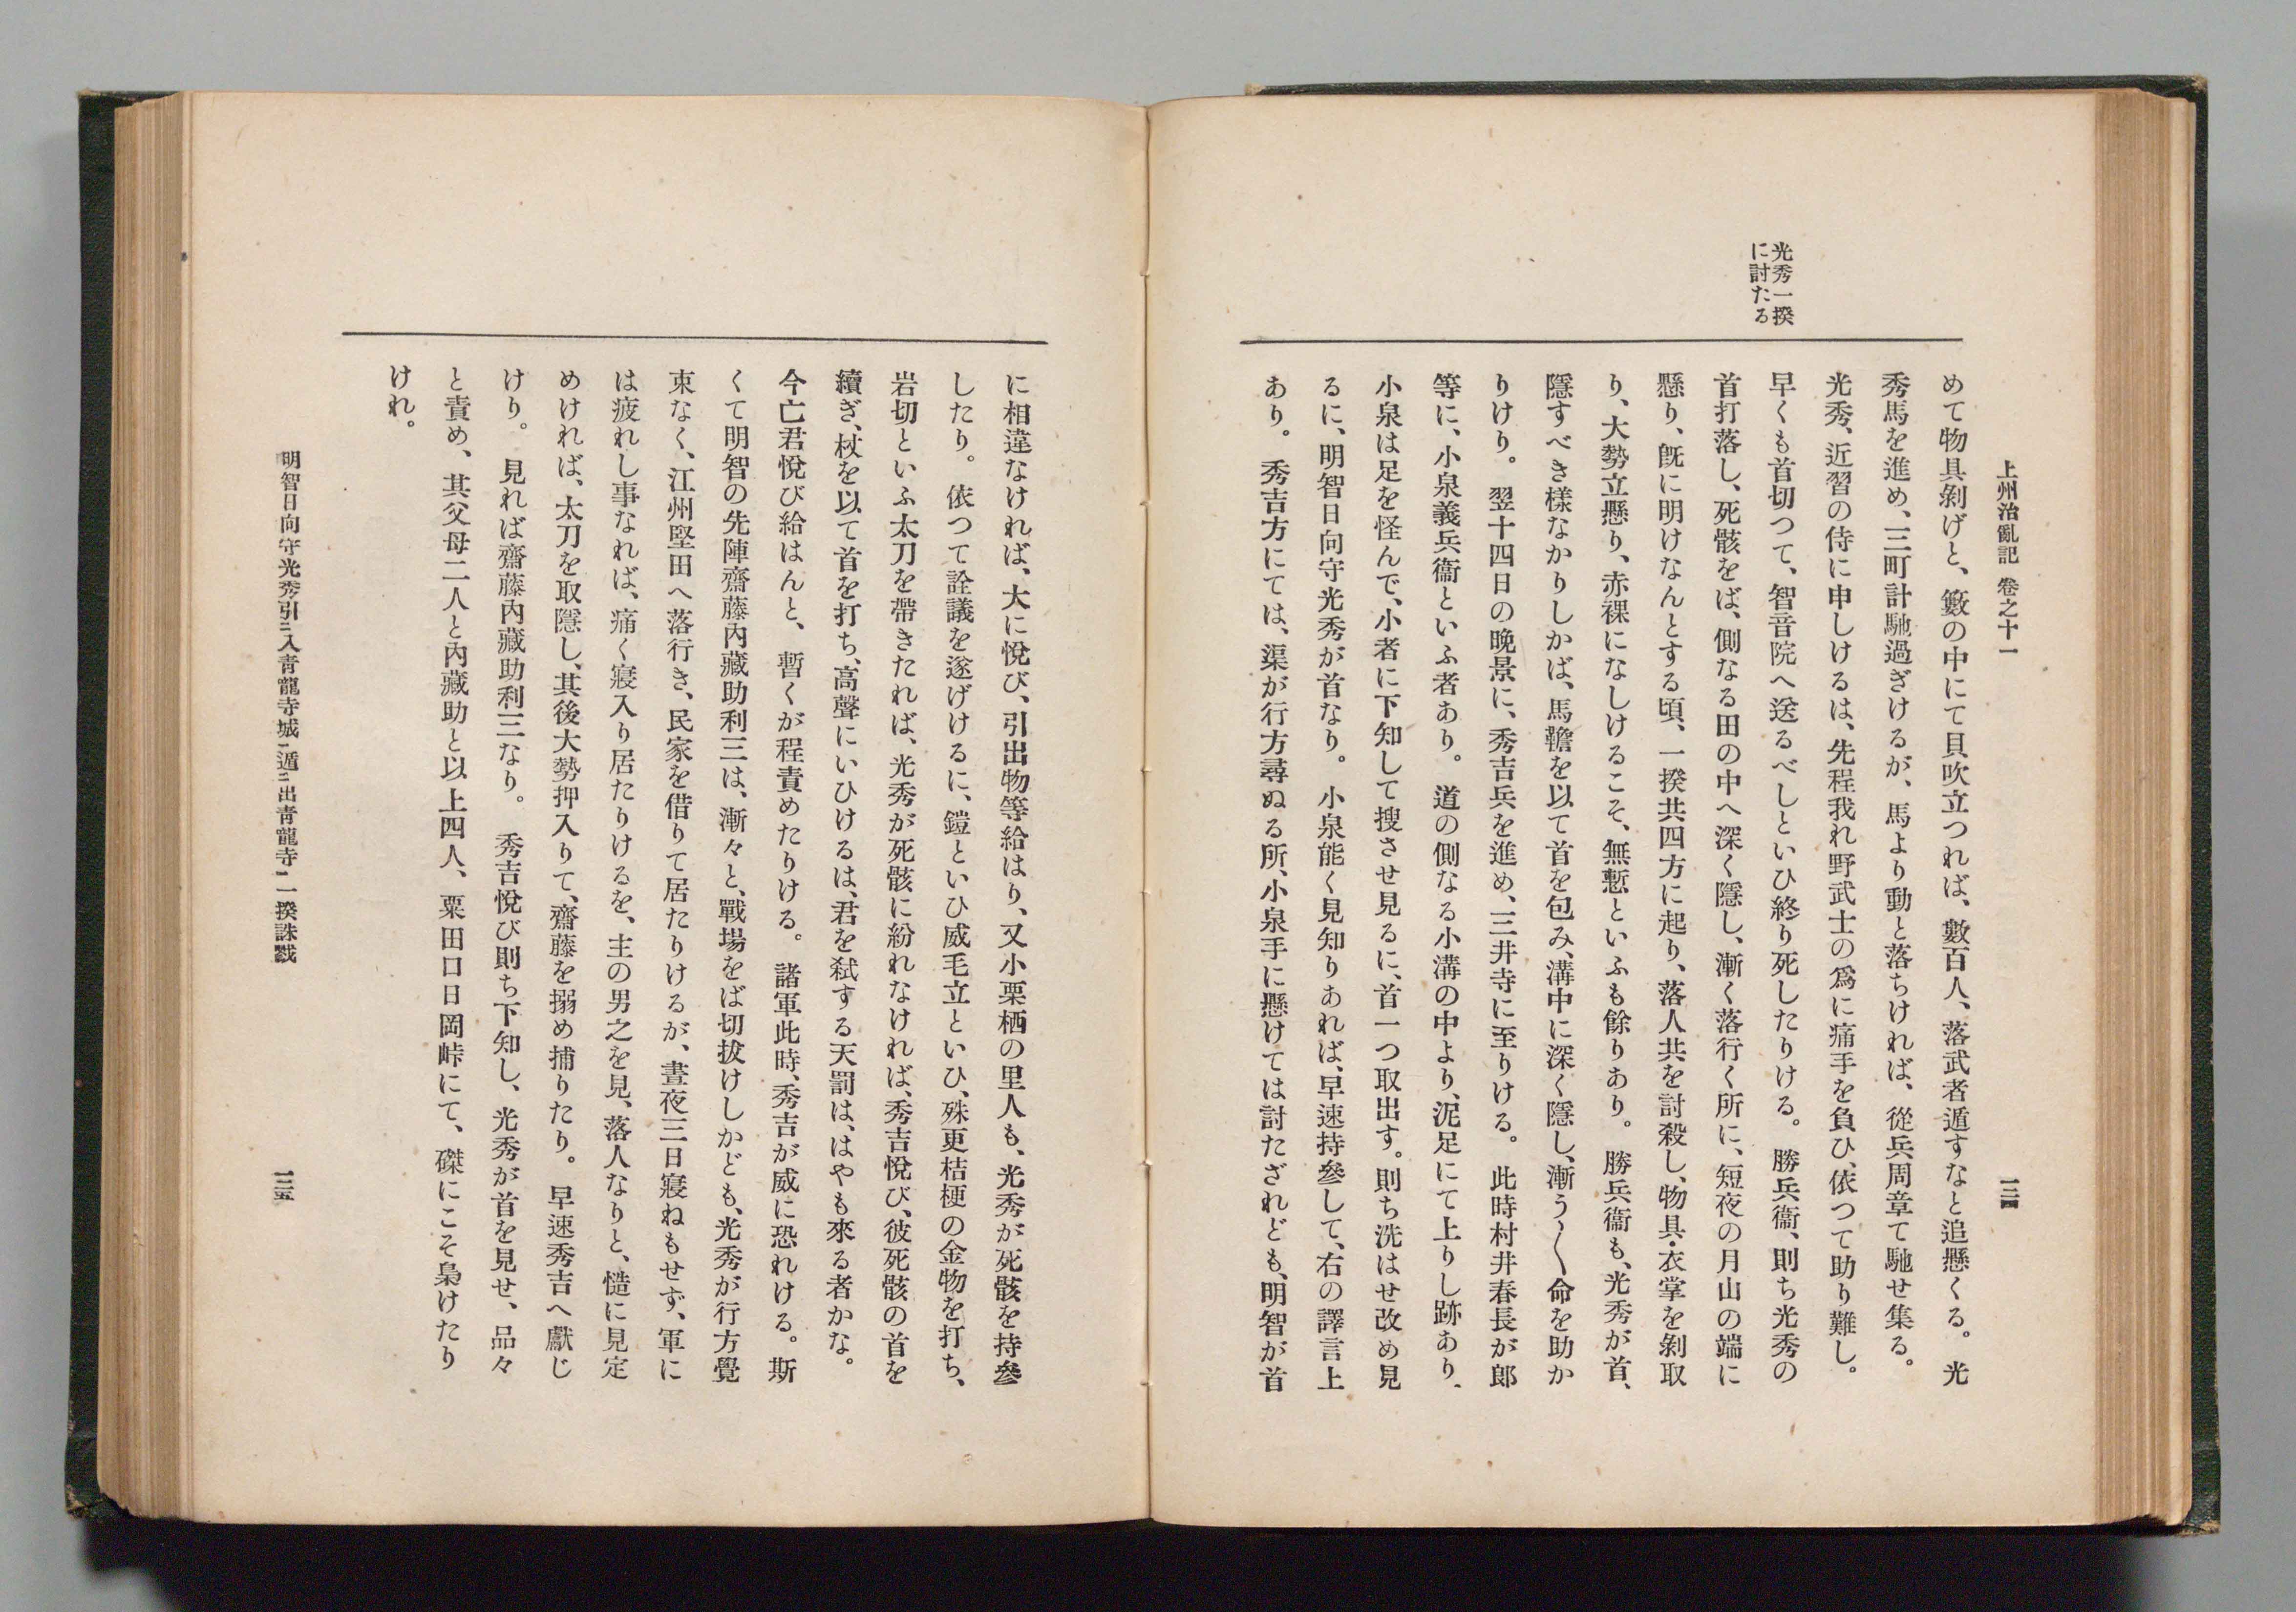 上州治亂記 卷之十一
一三四
光秀一揆
に討たる
めて物具剝げと、籔の中にて貝吹立つれば、數百人、落武者遁すなと追懸くる。光
秀馬を進め、三町計馳過ぎけるが、馬より動と落ちければ、從兵周章て馳せ集る。
光秀、近習の侍に申しけるは、先程我れ野武士の爲に痛手を負ひ、依つて助り難し。
早くも首切つて、智音院へ送るべしといひ終り死したりける。勝兵衞、則ち光秀の
首打落し、死骸をば、側なる田の中へ深く隱し、漸く落行く所に、短夜の月山の端に
懸り、旣に明けなんとする頃、一揆共四方に起り、落人共を討殺し、物具・衣掌を剝取
り、大勢立懸り、赤裸になしけるこそ、無慙といふも餘りあり。勝兵衞も、光秀が首、
隱すべき樣なかりしかば、馬韂を以て首を包み、溝中に深く隱し、漸う〳〵命を助か
りけり。翌十四日の晩景に、秀吉兵を進め、三井寺に至りける。此時村井春長が郞
等に、小泉義兵衞といふ者あり。道の側なる小溝の中より、泥足にて上りし跡あり、
小泉は足を怪んで、小者に下知して搜させ見るに、首一つ取出す。則ち洗はせ改め見
るに、明智日向守光秀が首なり。小泉能く見知りあれば、早速持參して、右の譯言上
あり。秀吉方にては、渠が行方尋ぬる所、小泉手に懸けては討たざれども、明智が首
に相違なければ、大に悅び、引出物等給はり、又小栗栖の里人も、光秀が死骸を持參
したり。依つて詮議を遂げけるに、鎧といひ威毛立といひ、殊更桔梗の金物を打ち、
岩切といふ太刀を帶きたれば、光秀が死骸に紛れなければ、秀吉悅び、彼死骸の首を
續ぎ、杖を以て首を打ち、高聲にいひけるは、君を弑する天罰は、はやも來る者かな。
今亡君悅び給はんと、暫くが程責めたりける。諸軍此時、秀吉が威に恐れける。斯
くて明智の先陣齋藤內藏助利三は、漸々と、戰場をば切拔けしかども、光秀が行方覺
束なく、江州堅田へ落行き、民家を借りて居たりけるが、晝夜三日寢ねもせず、軍に
は疲れし事なれば、痛く寢入り居たりけるを、主の男之を見、落人なりと、慥に見定
めければ、太刀を取隱し、其後大勢押入りて、齋藤を搦め捕りたり。早速秀吉へ獻じ
けり。見れば齋藤內藏助利三なり。秀吉悅び則ち下知し、光秀が首を見せ、品々
と責め、其父母二人と內藏助と以上四人、粟田口日岡峠にて、磔にこそ梟けたり
けれ。
明智日向守光秀引二入靑龍寺城一遁二出靑龍寺一一揆誅戮
一三五